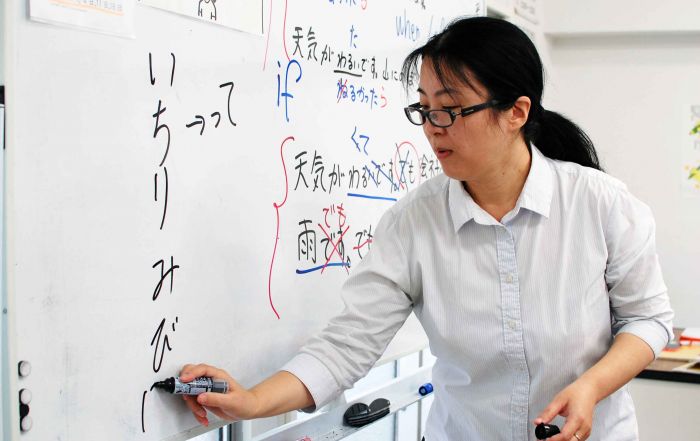 い
ち→って
り
み
び
when
た
天気がわるいです。山に
わるかったら
if
くて
天気がわるいです。でも
でも
雨です。でも